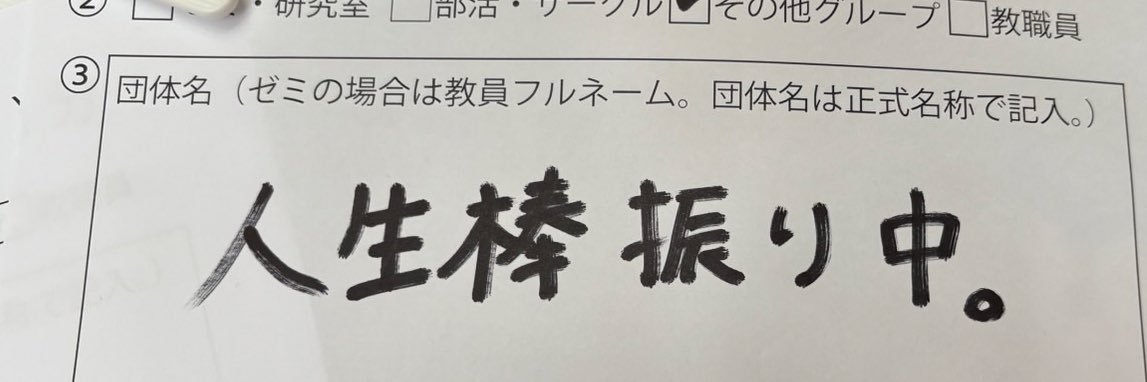 ② ・研究室 □部活・サークル ☑その他グループ □教職員
③ 団体名（ゼミの場合は教員フルネーム。団体名は正式名称で記入。）
人生棒振り中。